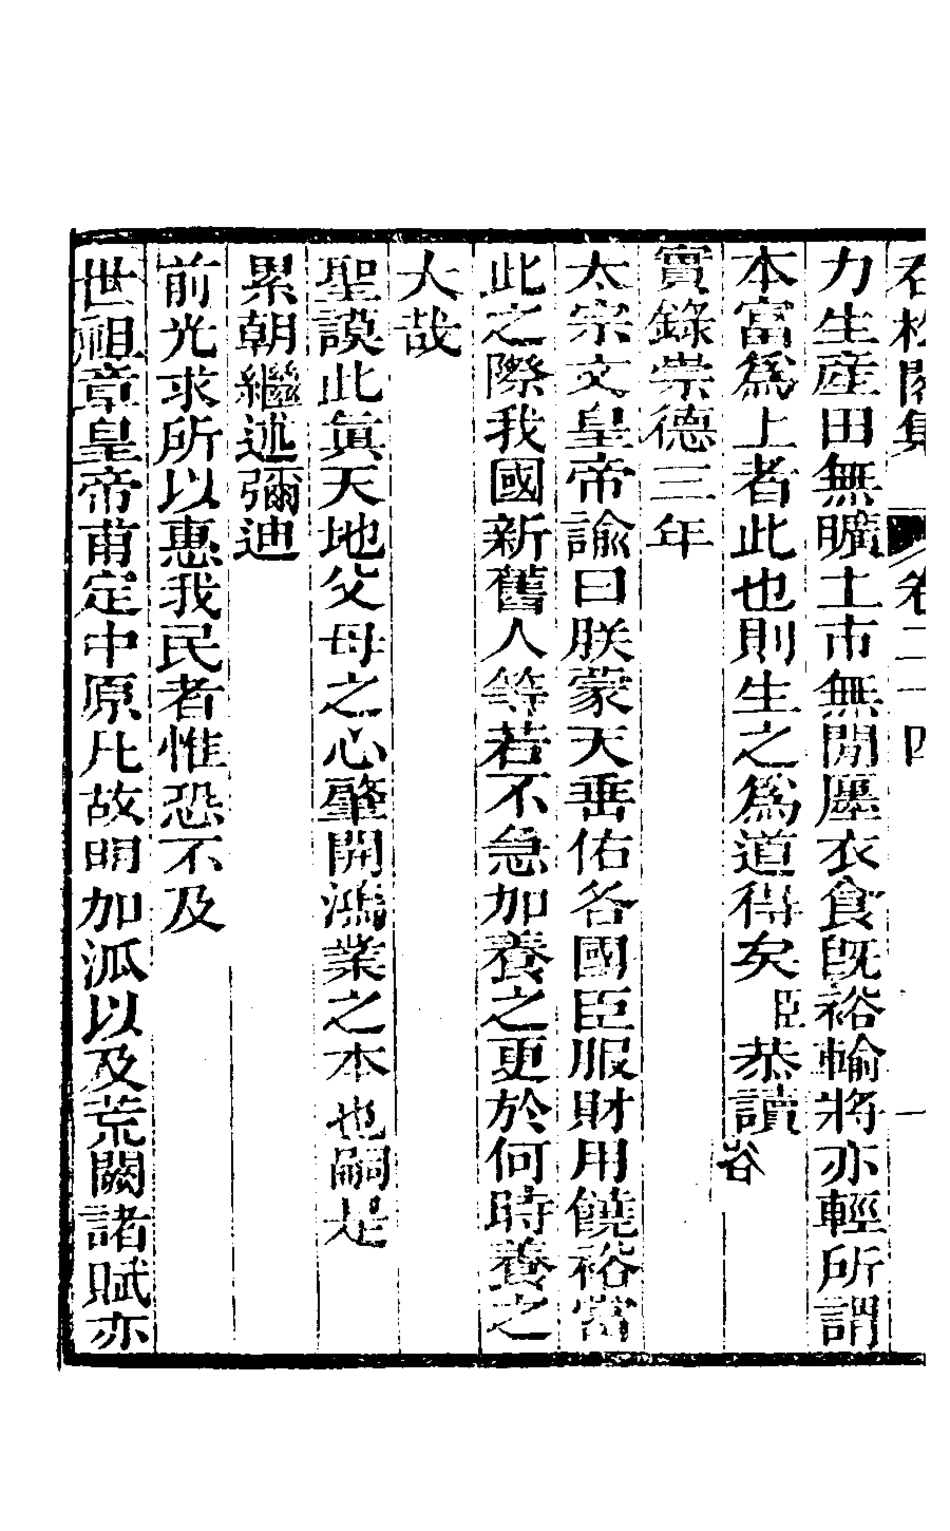 力生產田無曠土市無閒廛衣食旣裕輸將亦輕所謂
本富爲上者此也則生之爲道得矣臣恭讀
實錄崇德三年
太宗文皇帝諭曰朕蒙天垂佑各國臣服財用饒裕當
此之際我國新舊人等若不急加養之更於何時養之
大哉
聖謨此眞天地父母之心肇開鴻業之本也嗣是
累朝繼述彌迪
前光求所以惠我民者惟恐不及
世祖章皇帝甫定中原凡故明加派以及荒闕諸賦亦